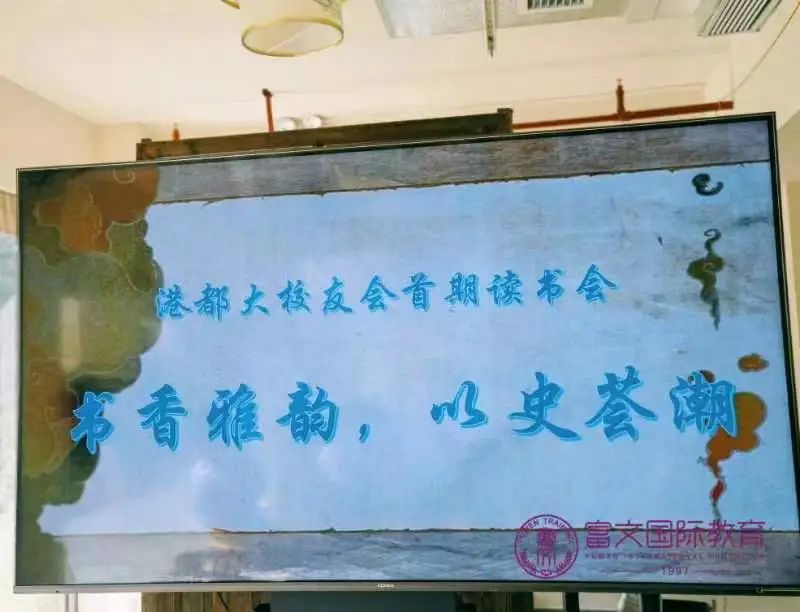 港都大校友会首期读书会
书香雅韵，以史荟潮
富文国际教育
1997